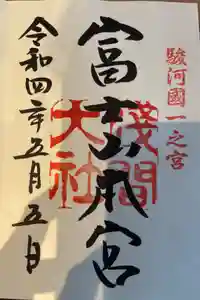 駿河國一之宮
富士山本宮
淺間大社
令和四年五月五日